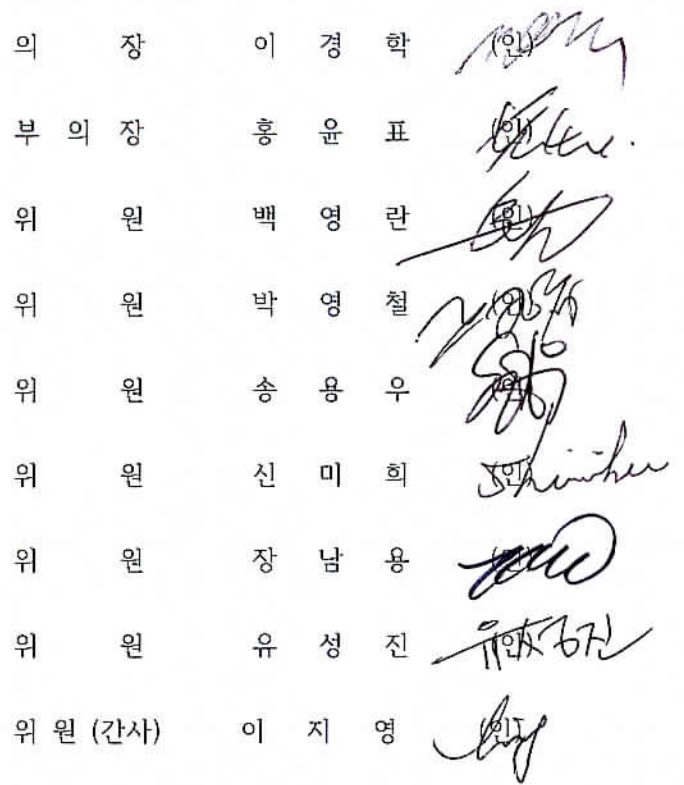 의 장 이 경 학 (인)
부 의 장 홍 윤 표 (인)
위 원 백 영 란 (인)
위 원 박 영 철 (인)
위 원 송 용 우 (인)
위 원 신 미 희 (인)
위 원 장 남 용 (인)
위 원 유 성 진 (인)
위 원 (간사) 이 지 영 (인)